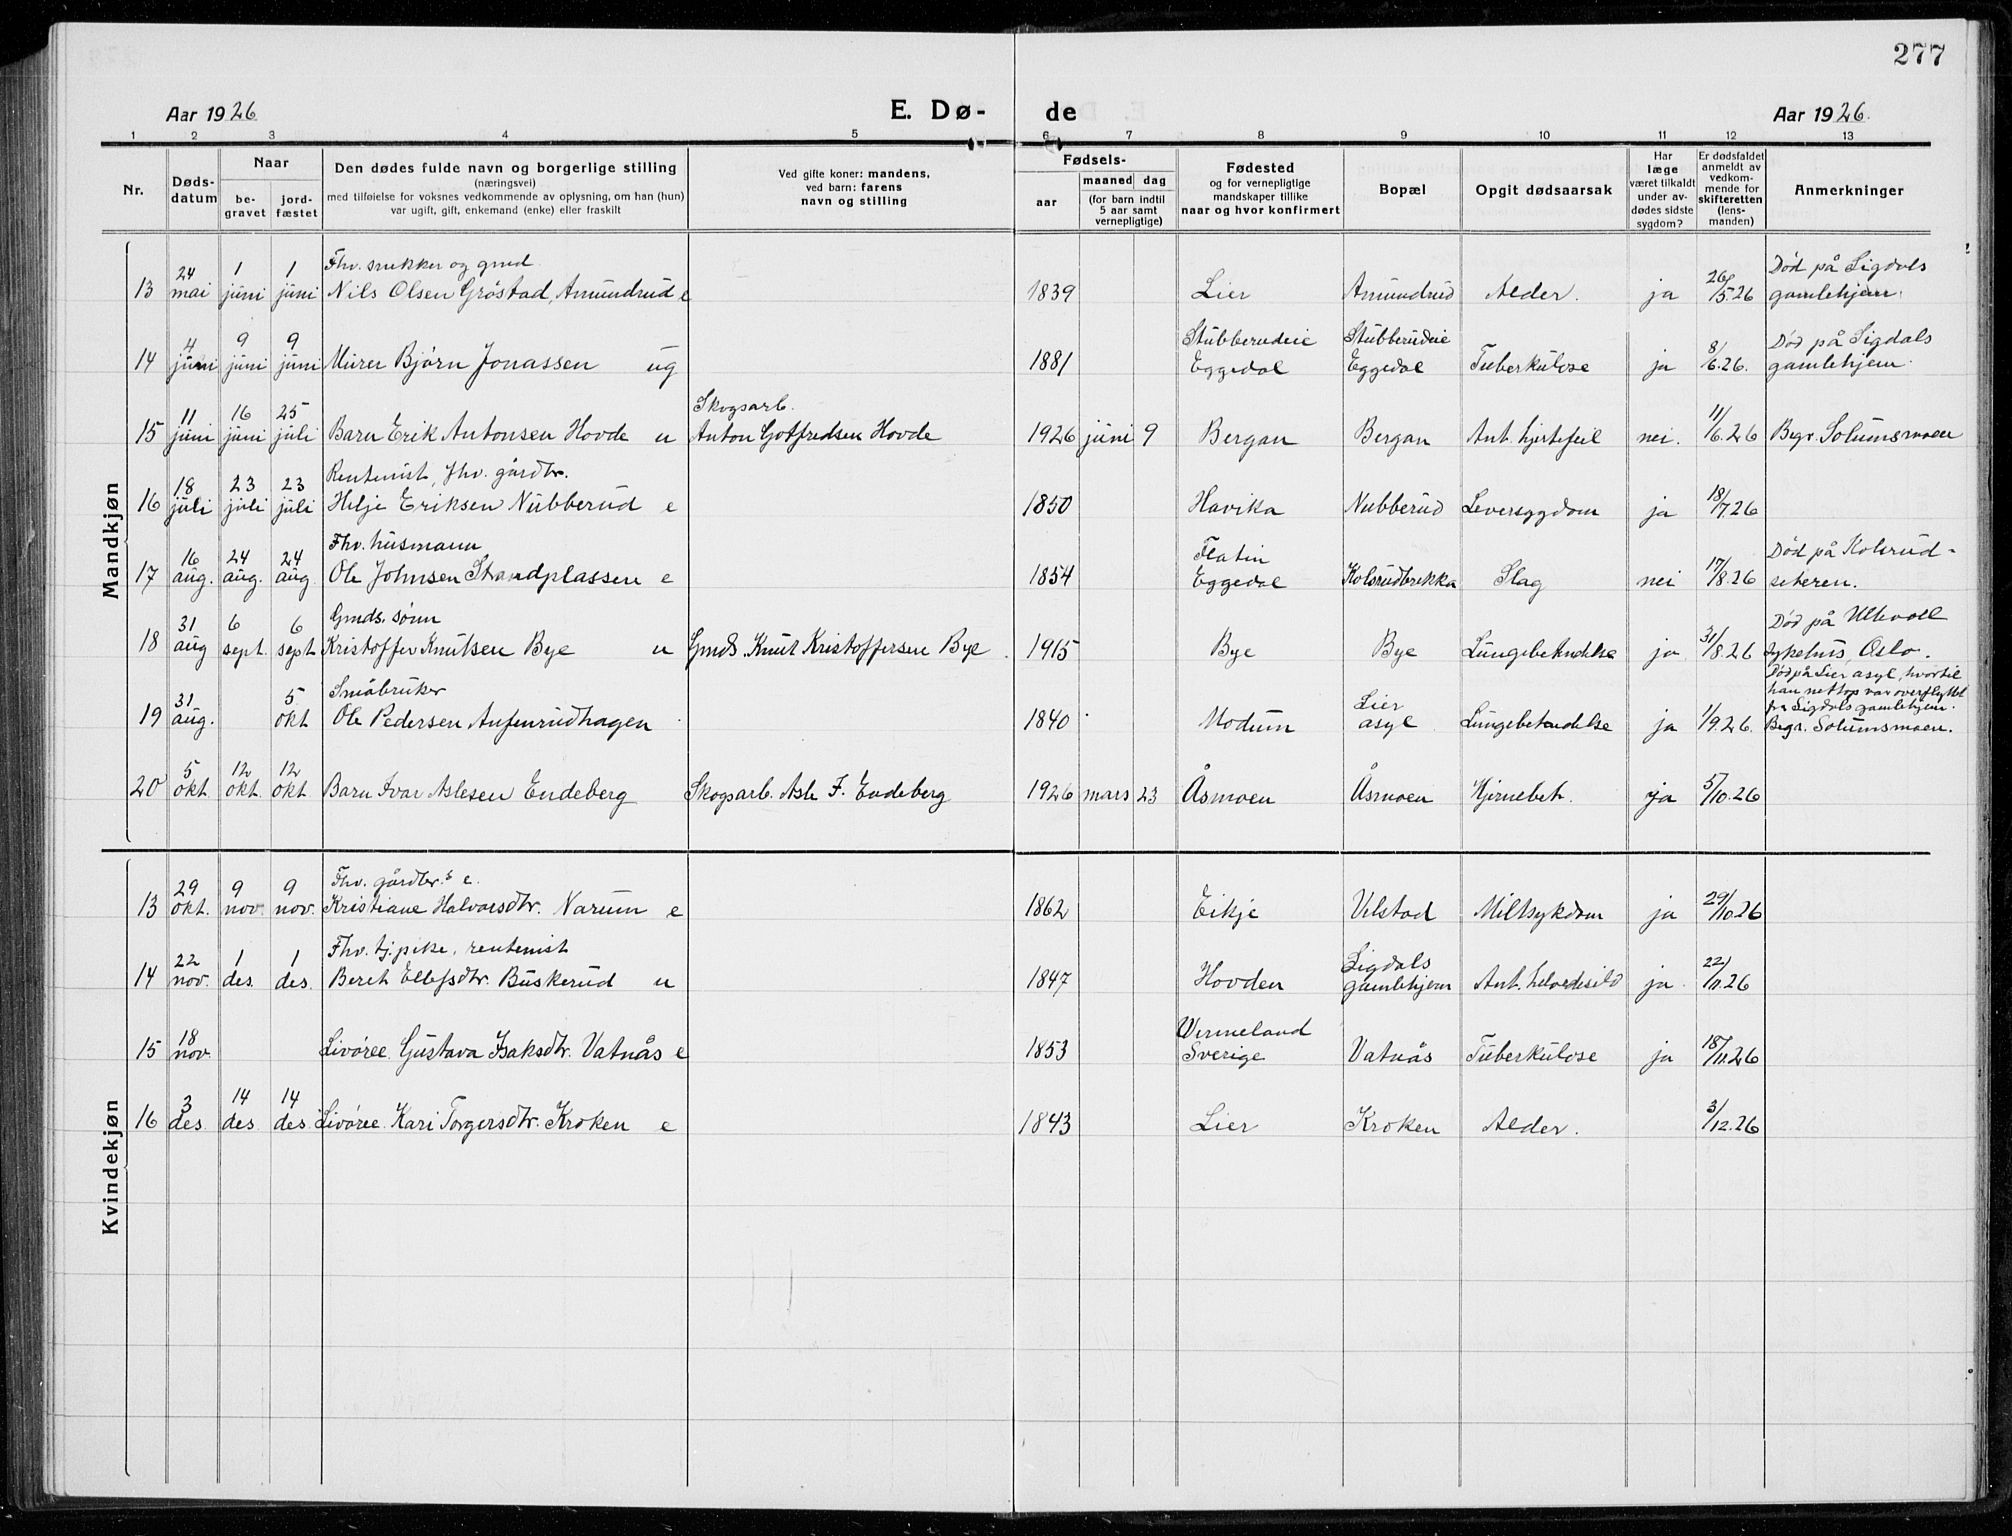 277
Aar 1926 E. Dø- de Aar 1926.
1 2 3 4 5 6 7 8 9 10 11 12 13
Nr.
Døds-
datum
Naar
be-
gravet
jord-
fæstet
Den dødes fulde navn og borgerlige stilling
(næringsvei)
med tilføielse for voksnes vedkommende av oplysning, om han (hun)
var ugift, gift, enkemand (enke) eller fraskilt
Ved gifte koner: mandens,
ved barn: farens
navn og stilling
Fødsels-
aar
maaned dag
(for barn indtil
5 aar samt
vernepligtige)
Fødested
og for vernepligtige
mandskaper tillike
naar og hvor konfirmert
Bopæl
Opgit dødsaarsak
Har
læge
været tilkaldt
under av-
dødes sidste
sygdom?
Er dødsfaldet
anmeldt av
vedkom-
mende for
skifteretten
(lens-
manden)
Anmerkninger
Mandkjøn
24 1 1 Fhv. snekker og gmd. 26/ Død på Sigdals
13 mai juni juni Nils Olsen Grøstad, Amundrud e 1839 Lier Amundrud Alder. ja 5.26 gamlehjem.
4 9 9 Stubberudeie Stubberudeie 8/ Død på Sigdals
14 juni juni juni Murer Bjørn Jonassen ug 1881 Eggedal Eggedal Tuberkulose ja 6.26. gamlehjem.
11 16 25 Skogsarb. 11/
15 juni juni juli Barn Erik Antonsen Hovde u Anton Gotfredsen Hovde 1926 juni 9 Bergan Bergan Ant. hjertefeil nei. 6.26 Begr. Solumsmoen
18 23 23 Rentenist, fhv. gårdbr. 18/
16 juli juli juli Helje Eriksen Nubberud e 1850 Havika Nubberud Leversygdom ja 7.26
16 24 24 Fhv. husmann Flatin 17/ Død på Kolsrud-
17 aug. aug. aug. Ole Johnsen Strandplassen e 1854 Eggedal Kolsrudbrekka Slag nei 8.26 seteren.
31 6 6 Gmds. sønn 31/ Død på Ullevoll
18 aug sept. sept Kristoffer Knutsen Bye u Gmds. Knut Kristoffersen Bye 1915 Bye Bye Lungebetendelse ja 8.26 sykehus, Oslo.
31 5 Småbruker Lier Død på Lier asyl, hvortil
han nettop var overflyttet
fra Sigdals gamlehjem.
19 aug. okt Ole Pedersen Aufinrudhagen 1840 Modum asyl Lungebetendelse ja 1/9.26. Begr. Solumsmoen.
5 12 12 5/
20 okt okt. okt. Barn Ivar Aslesen Endeberg Skogsarb. Asle F. Endeberg 1926 mars 23 Åsmoen Åsmoen Hjernebet. ja 10.26
Kvindekjøn
29 9 9 Fhv. gårdbr.s e. 29/
13 okt. nov. nov. Kristiane Halvorsdtr. Narum e 1862 Eikje Vilstad Miltsykdom ja 10.26
22 1 1 Fhv. tj.pike, rentenist Sigdals 22/
14 nov. des. des. Beret Ellefsdtr. Buskerud u 1847 Hovden gamlehjem Ant. helvedesild ja. 11.26
18 Wermeland 18/
15 nov. Livøree Gustava Isaksdtr. Vatnås e 1853 Sverige Vatnås Tuberkulose ja 11.26
3 14 14 3/
16 des. des. des. Livøree Kari Torgersdtr. Kroken e 1843 Lier Kroken Alder. 12.26